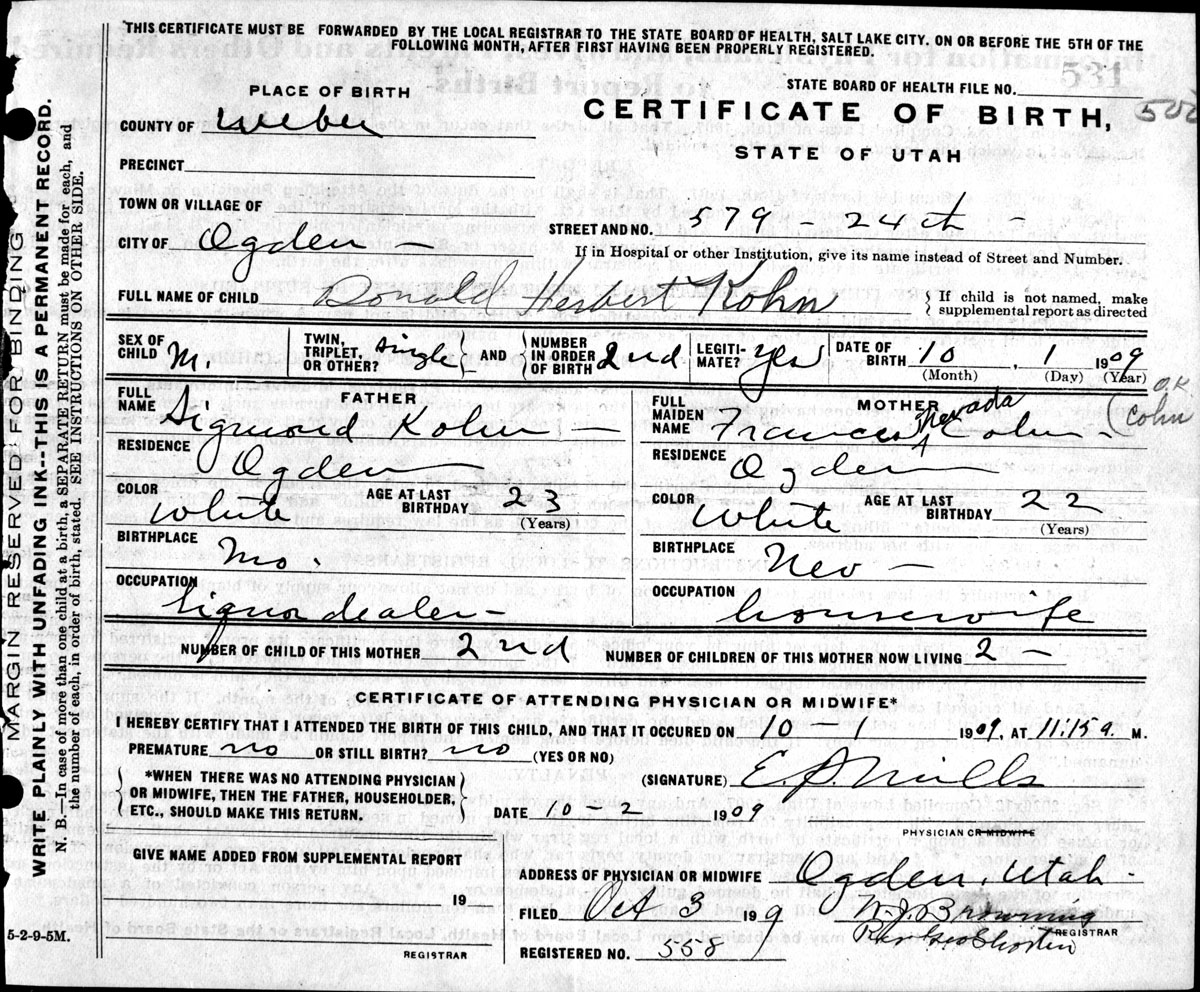 THIS CERTIFICATE MUST BE FORWARDED BY THE LOCAL REGISTRAR TO THE STATE BOARD OF HEALTH, SALT LAKE CITY, ON OR BEFORE THE 5TH OF THE
FOLLOWING MONTH, AFTER FIRST HAVING BEEN PROPERLY REGISTERED.
STATE BOARD OF HEALTH FILE NO.
PLACE OF BIRTH
CERTIFICATE OF BIRTH,
COUNTY OF Weber
STATE OF UTAH
PRECINCT
TOWN OR VILLAGE OF
STREET AND NO. 579 - 24th -
CITY OF Ogden
If in Hospital or other Institution, give its name instead of Street and Number.
FULL NAME OF CHILD Donald Herbert Kohn
If child is not named, make
supplemental report as directed
SEX OF CHILD M.
TWIN, TRIPLET, OR OTHER? single
AND
NUMBER IN ORDER OF BIRTH 2nd
LEGITIMATE? yes
DATE OF BIRTH 10, 1 1909
(Month) (Day) (Year)
FATHER
FULL NAME Sigmond Kohn -
RESIDENCE Ogden
COLOR White
AGE AT LAST BIRTHDAY 23
(Years)
BIRTHPLACE Mo.
OCCUPATION liquor dealer -
MOTHER
FULL MAIDEN NAME Frances Nevada Cohn -
O.K.
Cohn
RESIDENCE Ogden
COLOR White
AGE AT LAST BIRTHDAY 22
(Years)
BIRTHPLACE Nev -
OCCUPATION housewife
NUMBER OF CHILD OF THIS MOTHER 2nd NUMBER OF CHILDREN OF THIS MOTHER NOW LIVING 2 -
CERTIFICATE OF ATTENDING PHYSICIAN OR MIDWIFE*
I HEREBY CERTIFY THAT I ATTENDED THE BIRTH OF THIS CHILD, AND THAT IT OCCURED ON 10 1 1909, AT 11:15 a. M.
PREMATURE no OR STILL BIRTH? no (YES OR NO)
*WHEN THERE WAS NO ATTENDING PHYSICIAN
OR MIDWIFE, THEN THE FATHER, HOUSEHOLDER,
ETC., SHOULD MAKE THIS RETURN.
(SIGNATURE) E P Mills
DATE 10 2 1909
PHYSICIAN OR MIDWIFE
GIVE NAME ADDED FROM SUPPLEMENTAL REPORT
19
REGISTRAR
ADDRESS OF PHYSICIAN OR MIDWIFE Ogden, Utah -
FILED Oct 3 1909
Browning
REGISTRAR
REGISTERED NO. 558
5-2-9-5M.
MARGIN RESERVED FOR BINDING
WRITE PLAINLY WITH UNFADING INK--THIS IS A PERMANENT RECORD.
N. B.—In case of more than one child at a birth, a SEPARATE RETURN must be made for each, and
the number of each, in order of birth, stated. SEE INSTRUCTIONS ON OTHER SIDE.